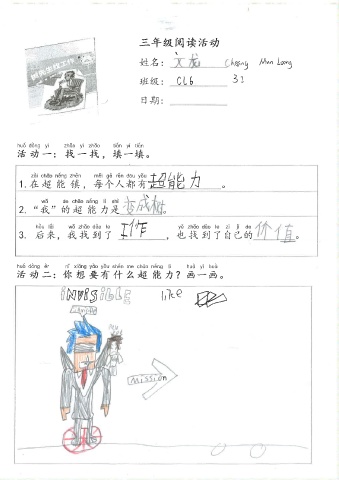 三年级阅读活动
姓名：文龙 Cheong Mun Loong
班级：CL6 3I
日期：
huó dòng yī zhǎo yì zhǎo tián yì tián
活动一：找一找，填一填。
zài chāo néng zhèn měi gè rén dōu yǒu
1. 在超能镇，每个人都有超能力。
wǒ de chāo néng lì shì
2. “我”的超能力是变成树。
hòu lái wǒ zhǎo dào le yě zhǎo dào le zì jǐ de
3. 后来，我找到了工作，也找到了自己的价值。
huó dòng èr nǐ xiǎng yào yǒu shén me chāo néng lì huà yi huà
活动二：你想要有什么超能力？画一画。
INVISIBLE like
Mission